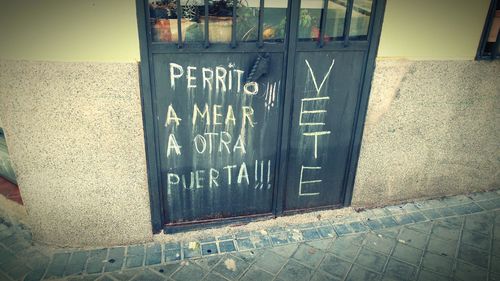 PERRITO!!!
A MEAR
A OTRA
PUERTA!!!
VETE